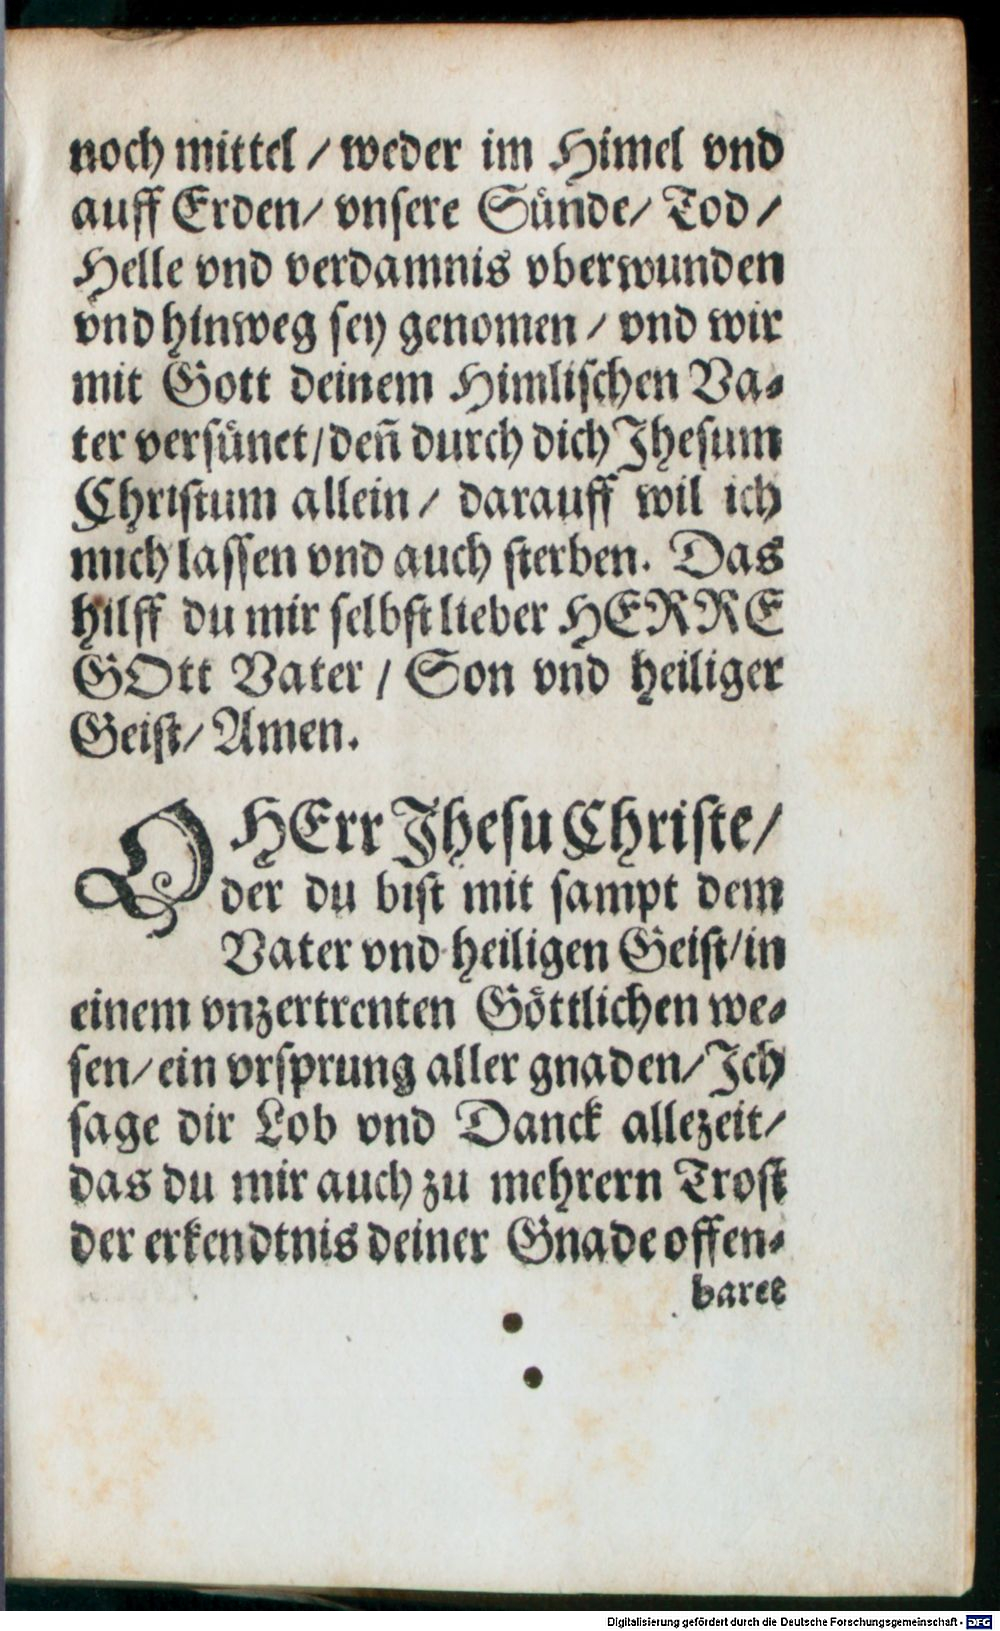 noch mittel / weder im Himel vnd
auff Erden / vnsere Sünde / Tod /
Helle vnd verdamnis vberwunden
vnd hinweg sey genomen / vnd wir
mit Gott deinem Himlischen Va-
ter versünet / deñ durch dich Jhesum
Christum allein / darauff wil ich
mich lassen vnd auch sterben. Das
hilff du mir selbst lieber HERRE
GOtt Vater / Son vnd heiliger
Geist / Amen.
O HErr Jhesu Christe /
der du bist mit sampt dem
Vater vnd heiligen Geist / in
einem vnzertrenten Göttlichen we-
sen / ein vrsprung aller gnaden / Ich
sage dir Lob vnd Danck allezeit /
das du mir auch zu mehrern Trost
der erkendtnis deiner Gnade offen-
baret
Digitalisierung gefördert durch die Deutsche Forschungsgemeinschaft - DFG